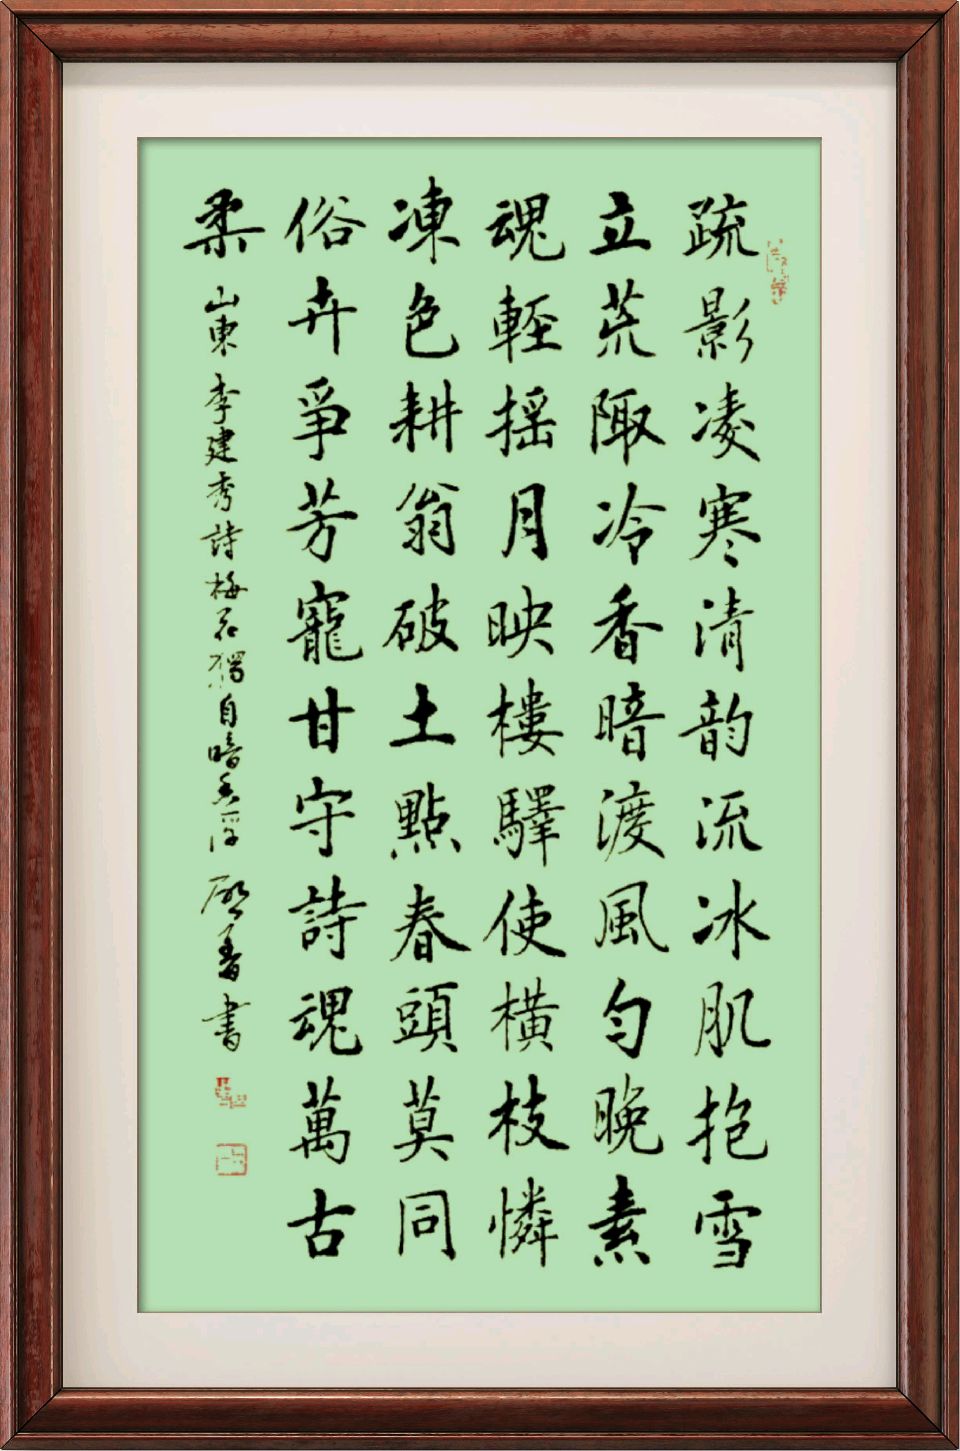 疏影凌寒清韵流冰肌抱雪
立荒陬冷香暗渡風勻晚素
魂輕摇月映樓驛使橫枝憐
凍色耕翁破土點春頭莫同
俗卉爭芳寵甘守詩魂萬古
柔
山東李建秀詩梅花獨自暗香浮
書